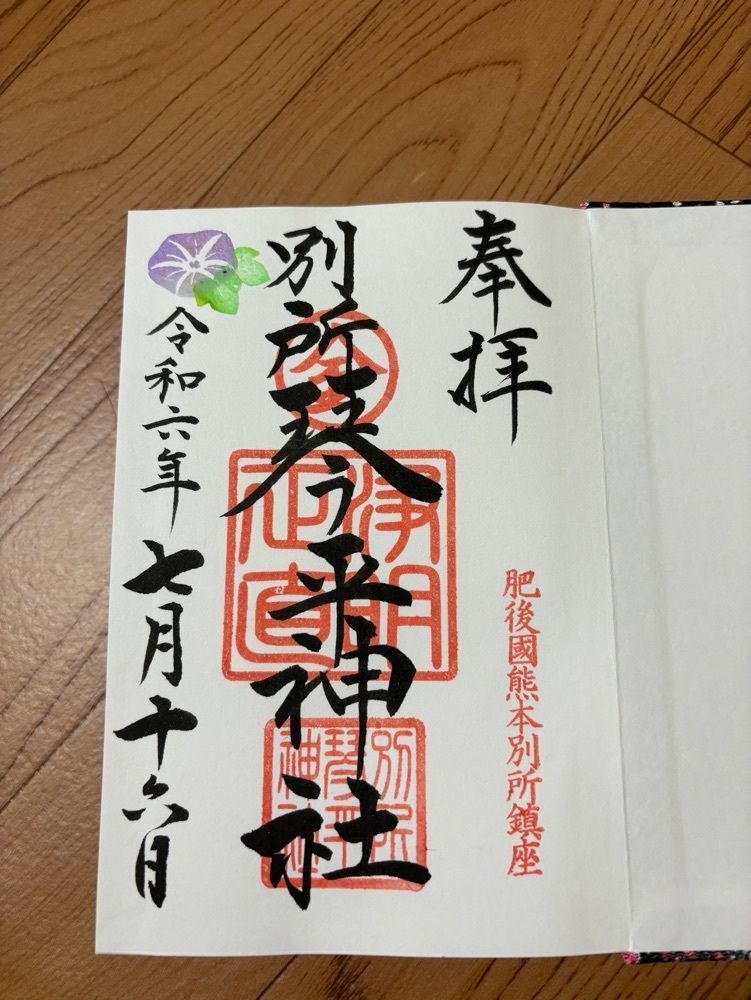 奉拝
肥後國熊本別所鎮座
別所琴平神社
浄明
正直
別所
琴平
神社
令和六年七月十六日